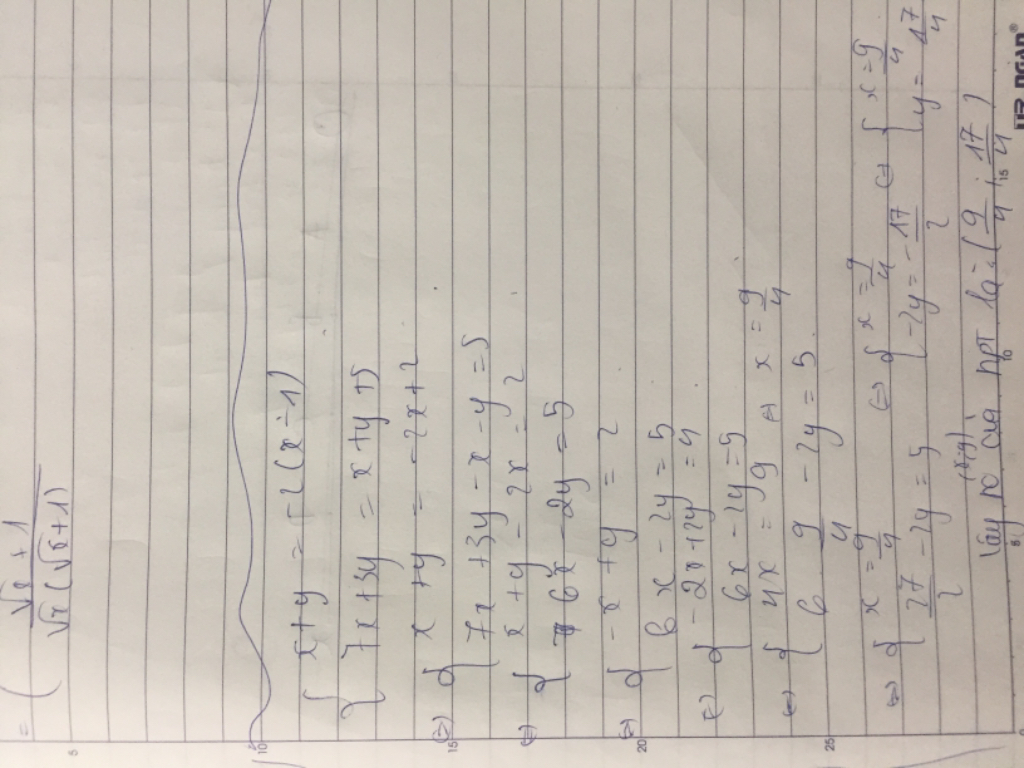 = ( √x + 1 / √x (√x + 1)
{ x + y = 2 (x - 1)
7x + 3y = x + y + 5
(=) { x + y = -2x + 2
7x + 3y - x - y = 5
(=) { x + y - 2x = 2
6x - 2y = 5
(=) { -x + y = 2
6x - 2y = 5
(=) { -2x + 2y = 4
6x - 2y = 5
(=) { 4x = 9 (=) x = 9/4
6 9/4 - 2y = 5
(=) { x = 9/4 (=) { x = 9/4 (=) { x = 9/4
27/2 - 2y = 5 -2y = -17/2 y = 17/4
Vậy no của hpt là (x;y) = (9/4 ; 17/4)
5
10
15
20
25
8
10
15